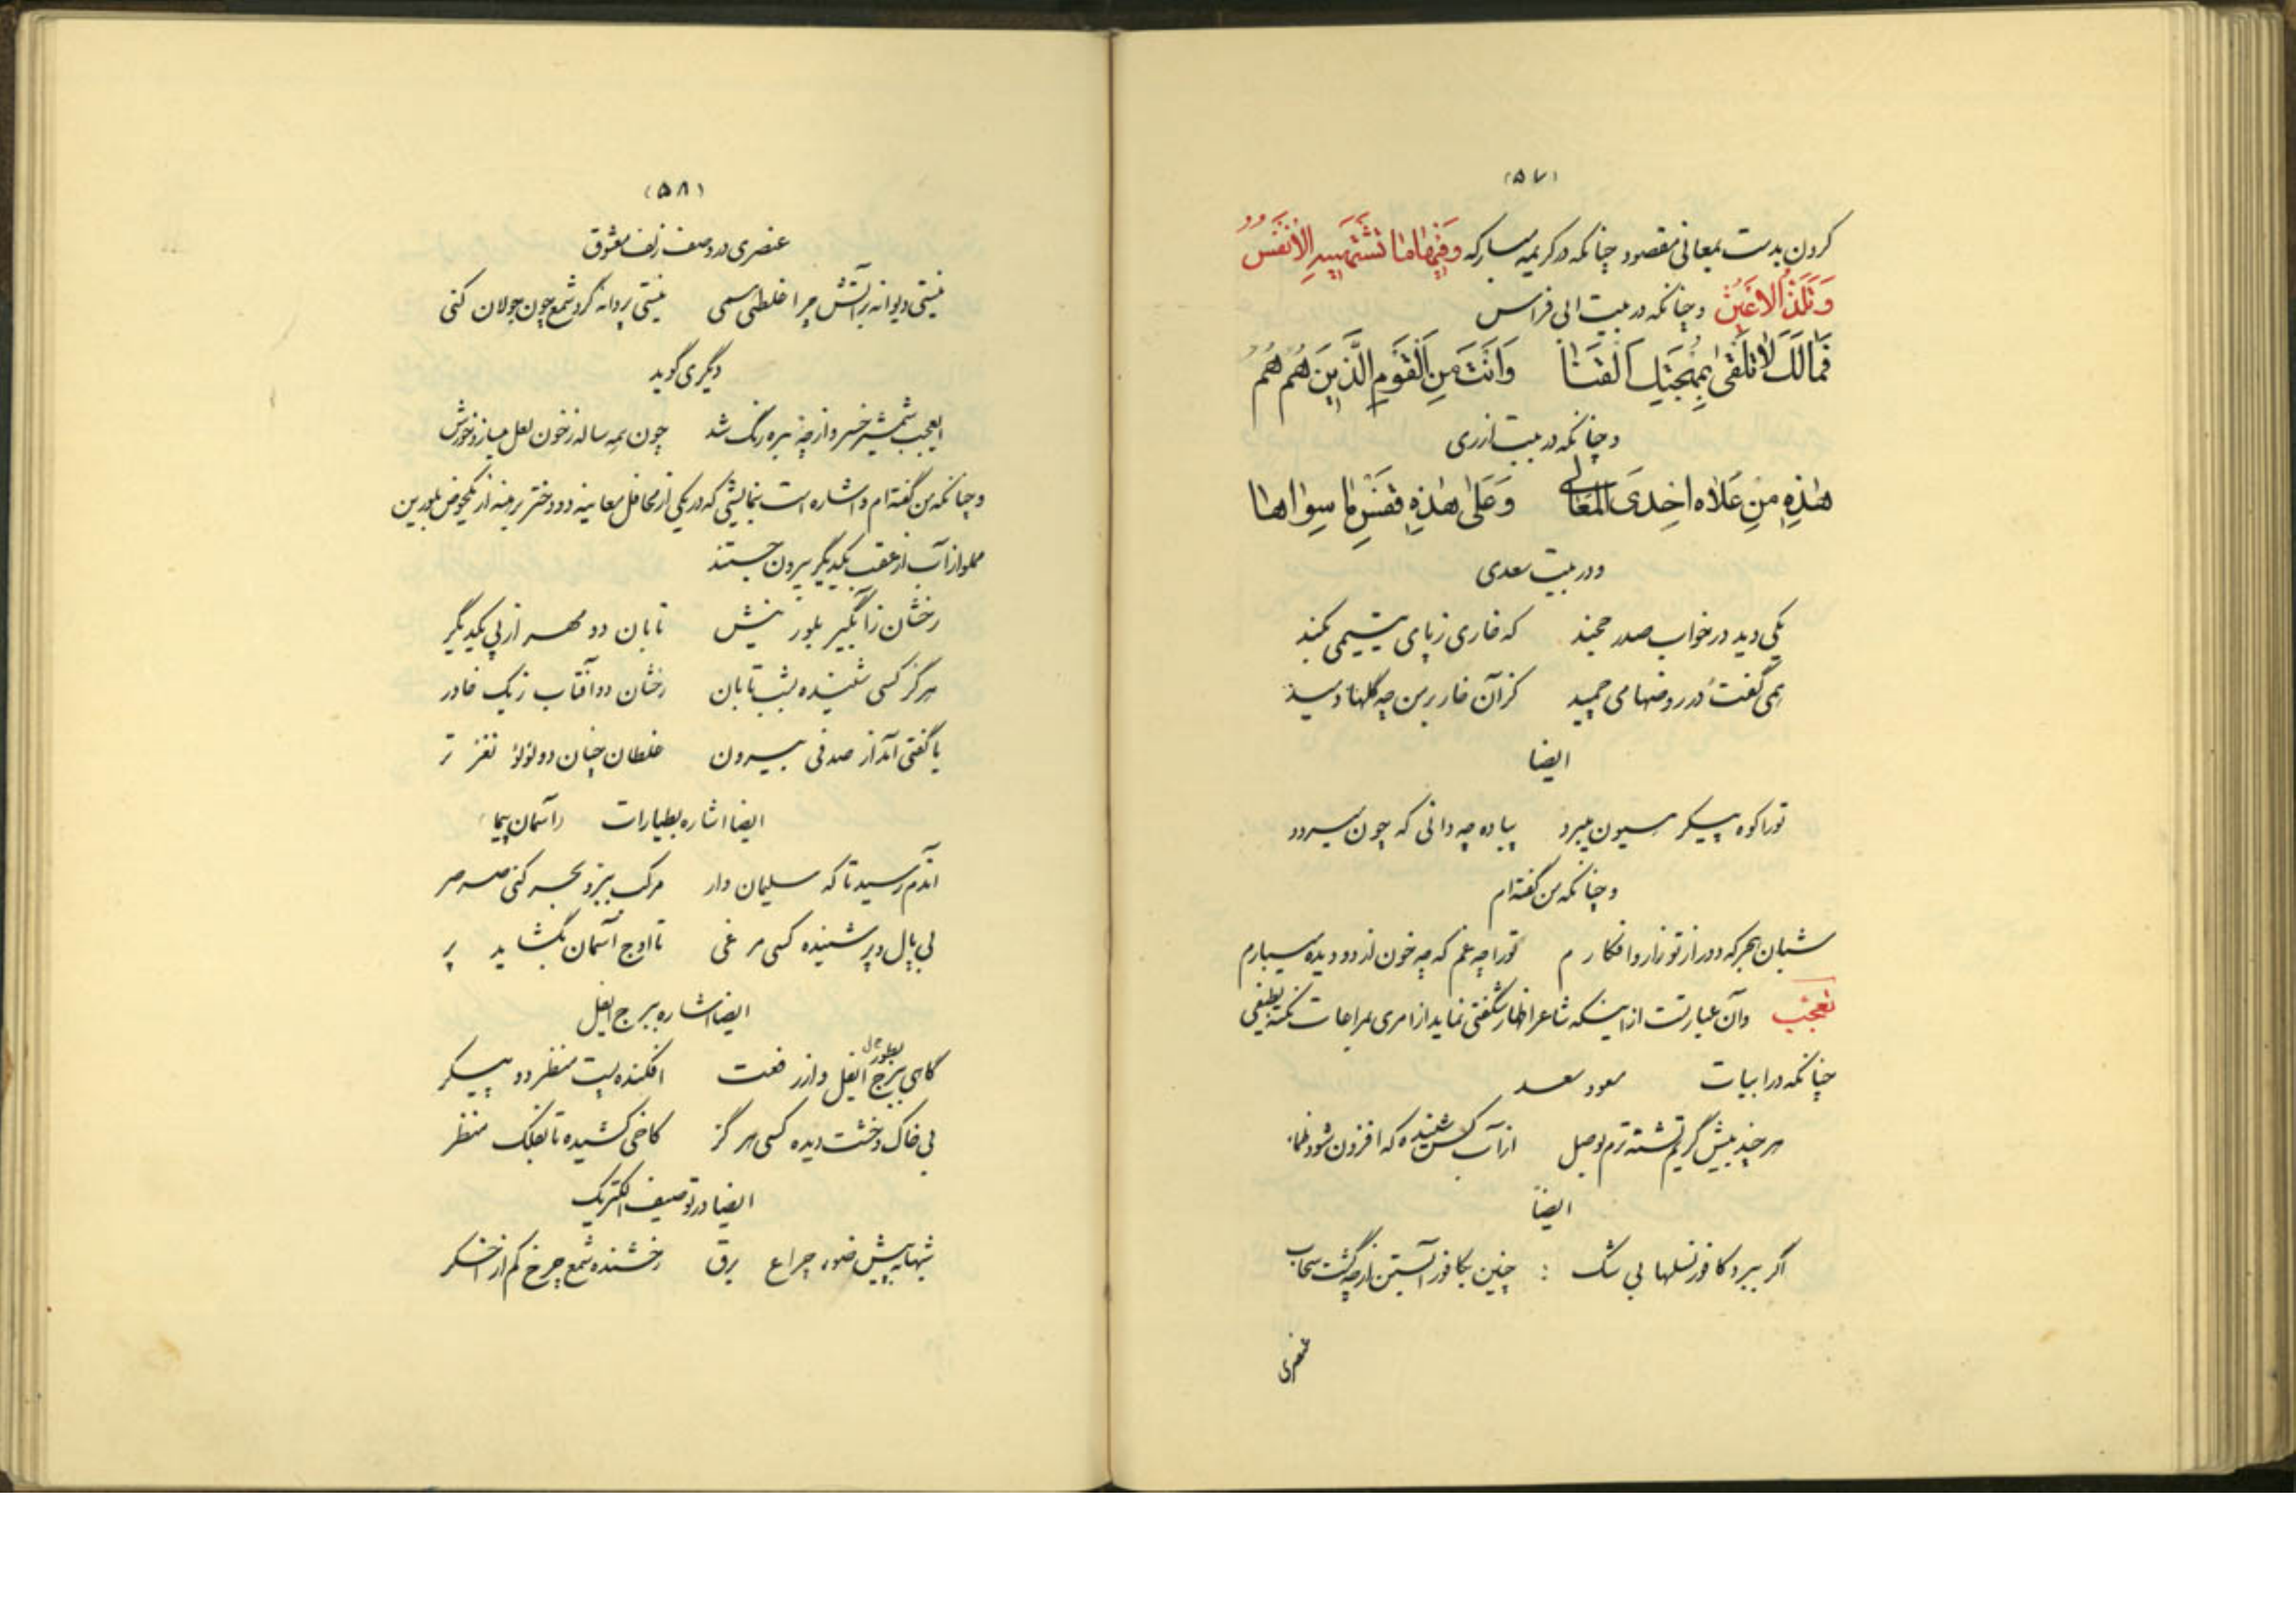 (۵۷)
کردن بدست بمعانی مقصود چنانکه در کریمه مبارکه وَفِیهَا مَا تَشْتَهِیهِ الْأَنْفُسُ
وَتَلَذُّ الْأَعْیُنُ وچنانکه در بیت ابی فراس
فَمَالَکَ لَا تَلْقَی بِمُهْجَتِکَ الْقَنَا وَاَنْتَ مِنَ الْقَوْمِ الَّذِینَ هُمُ هُمُ
وچنانکه در بیت ازری
هٰذِهِ مِنْ عُلَاهُ اِحْدَی الْمَعَالِی وَعَلَی هٰذِهِ فَقِسْ مَا سِوَاهَا
ودر بیت سعدی
یکی دید در خواب صدر خجند که خاری ز پای یتیمی بکند
همی گفت و در روضها می چمید کزآن خار بر من چه گلها دمید
ایضا
تورا کوه پیکر هیون میبرد پیاده چه دانی که چون میرود
وچنانکه من گفته‌ام
شبان هجر که دور از تو زار وافکارم تورا چه غم که چه خون از دو دیده میبارم
تعجّب وآن عبارتست از اینکه شاعر اظهار شگفتی نماید از امری بمراعات نکته لطیفی
چنانکه در ابیات مسعود سعد
هر چند بیش گریم تشنه ترم بوصل از آب کس شنیده که افزون شود ظما
ایضاً
اگر ببرد کافور نسلها بی شک : چنین بکافور آبستن از چه گشت سحاب
عنصری
(۵۸)
عنصری در وصف زلف معشوق
نیستی دیوانه بر آتش چرا غلطی همی نیستی پروانه گرد شمع چون جولان کنی
دیگری گوید
ایعجب شمشیر خسرو از چه فیروزه رنگ شد چون همه ساله ز خون لعل میباز خورش
وچنانکه من گفته‌ام واشاره است بنمایشی که در یکی از محافل معاینه دو دختر برهنه از یکحوض بلورین
مملو از آب از عقب یکدیگر بیرون جستند
رخشان ز آبگیر بلورینش تابان دو مهر از پی یکدیگر
هرگز کسی شنیده بشب تابان رخشان دو آفتاب ز یک خاور
یا گفتی آمد از صدفی بیرون غلطان چنان دو لؤلؤ نغز تر
ایضا اشاره بطیارات (آسمان پیما)
آندم رسید تا که سلیمان وار مرکب ببر و بحر کنی صرصر
بی بال و پر شنیده کسی مرغی تا اوج آسمان بگشاید پر
ایضا اشاره ببرج ایفل
گاهی ببرج ایفل واز رفعت افکنده پست منظر دو پیکر
بی خاک وخشت دیده کسی هرگز کاخی کشیده تا بفلک منظر
ایضا در توصیف الکتریک
شبها به پیش ضوء چراغ برق رخشنده شمع چرخ کم از اخگر